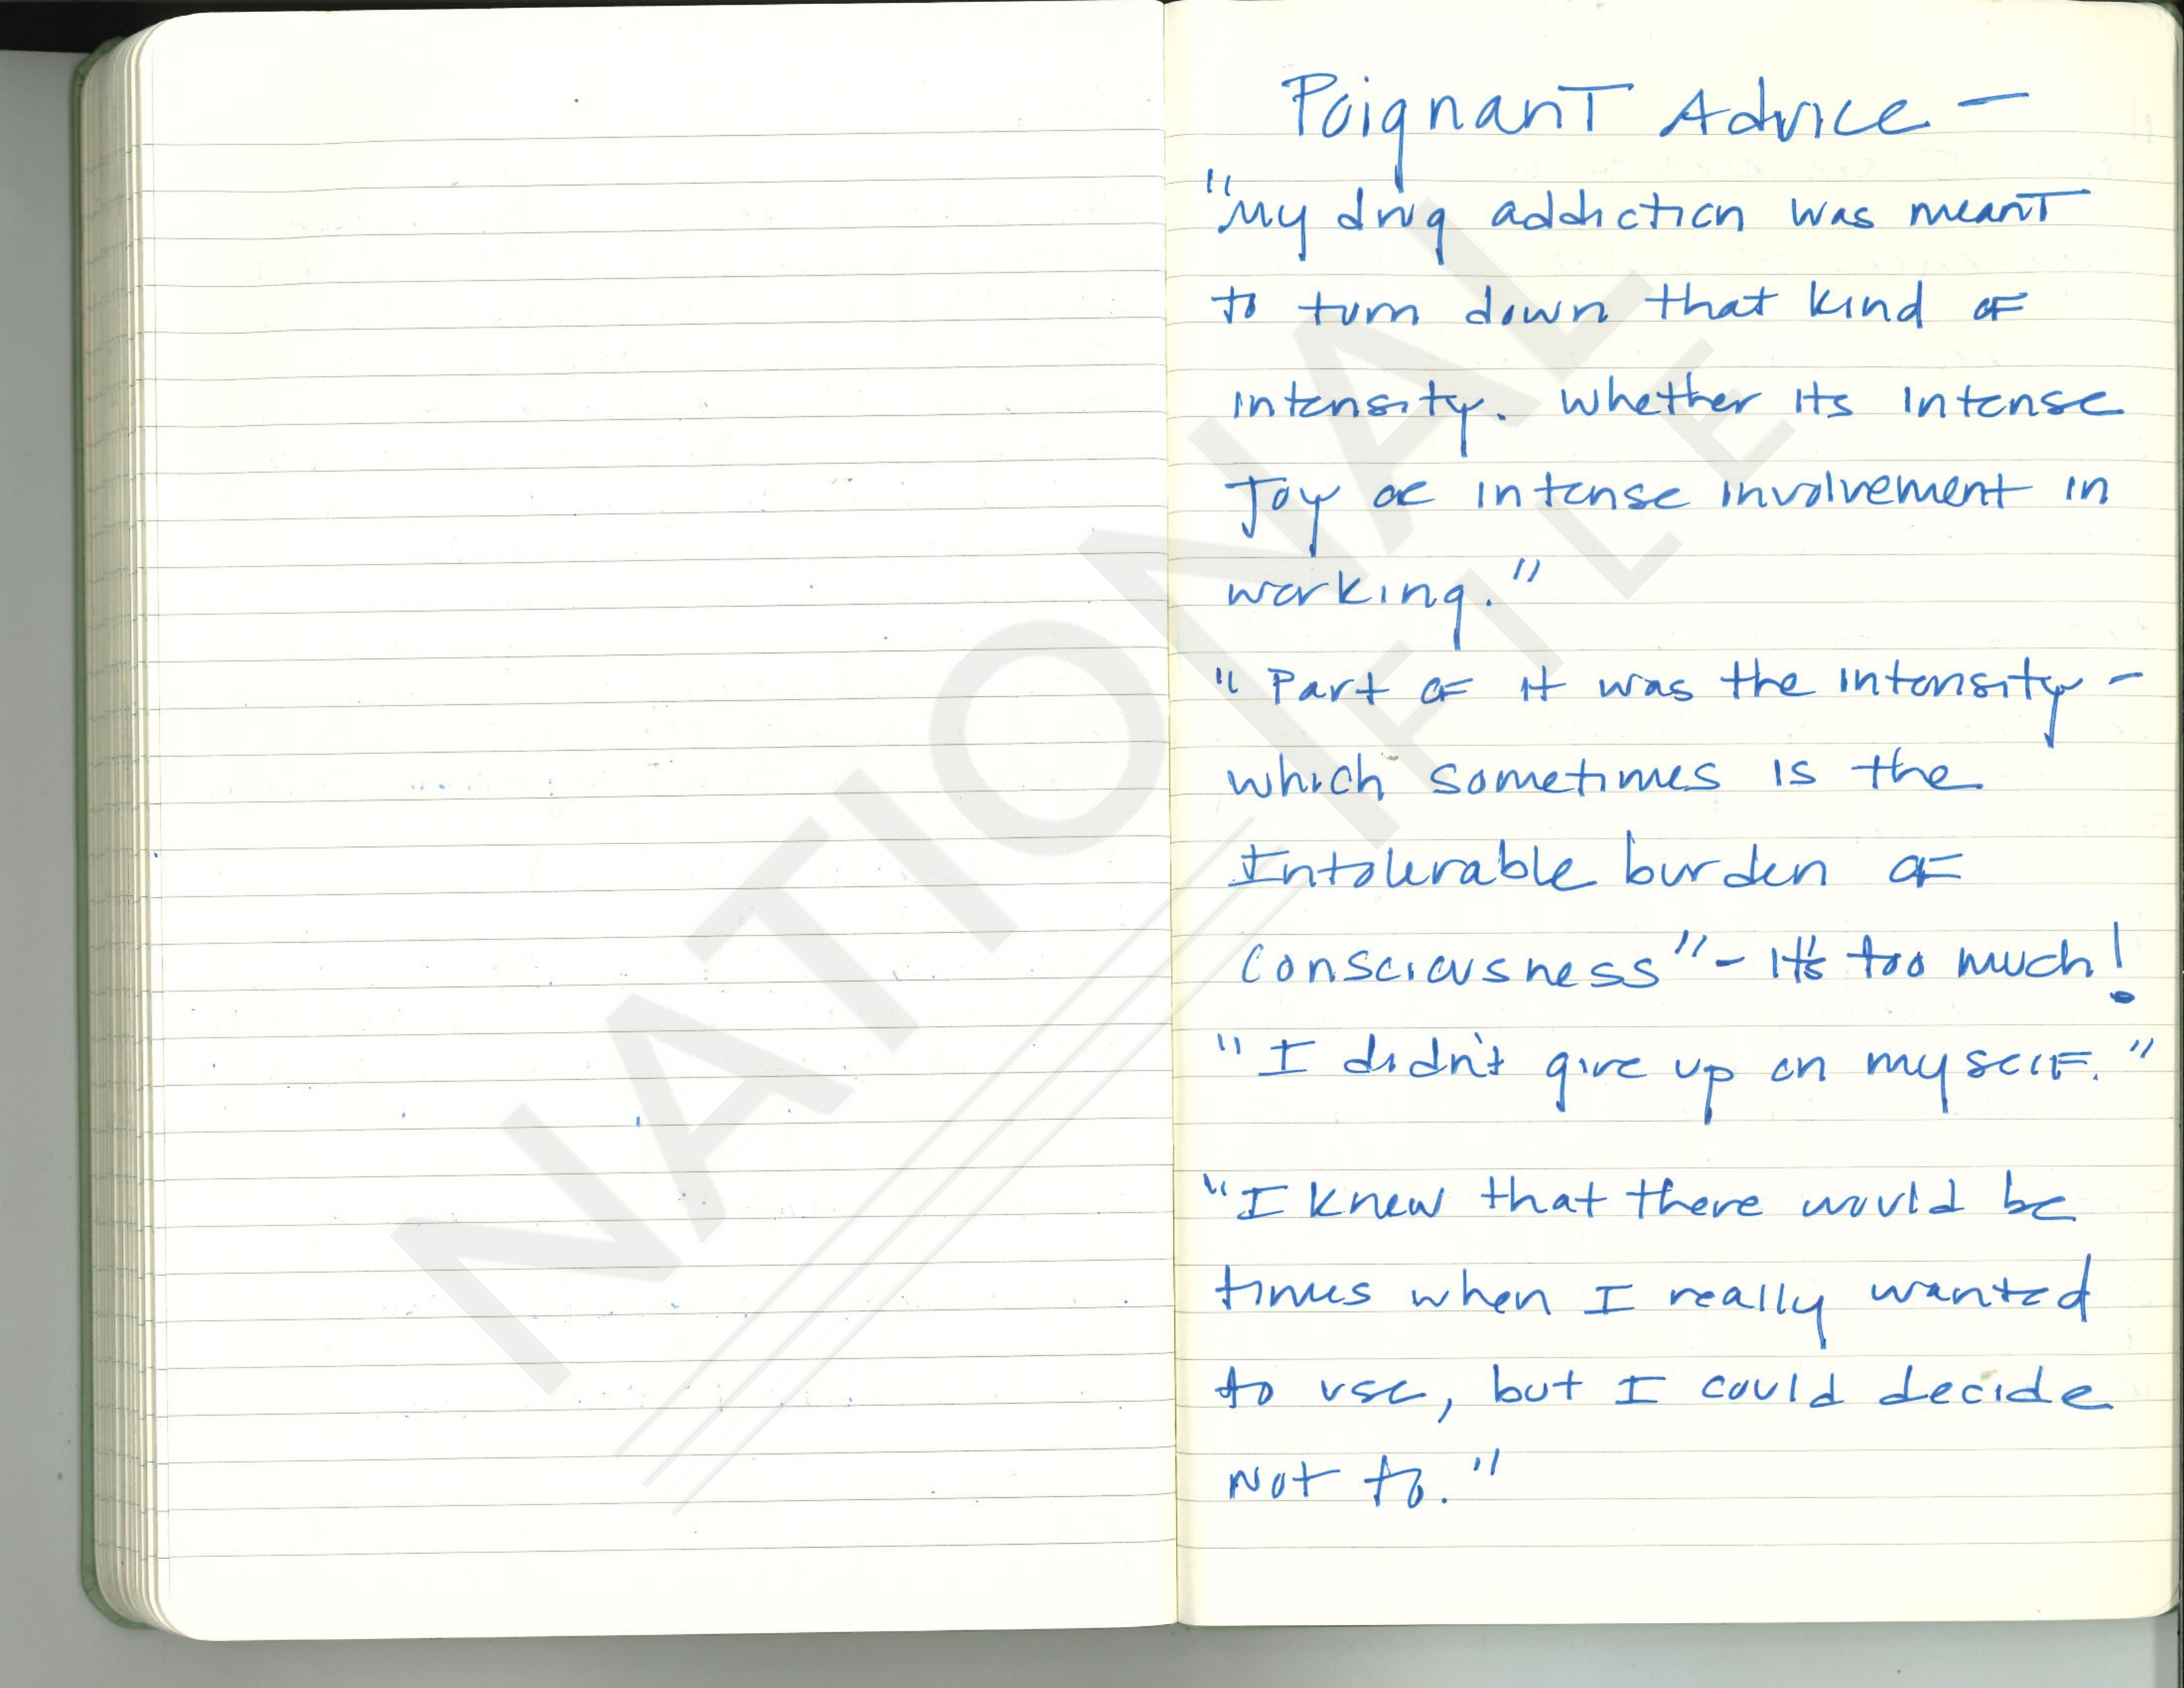 Poignant Advice —
"My drug addiction was meant
to turn down that kind of
intensity. Whether its intense
Joy or intense involvement in
working."
"Part of it was the intensity -
which sometimes is the
Intolerable burden of
Consciousness" - It's too much!
"I didn't give up on myself."
"I knew that there would be
times when I really wanted
to use, but I could decide
Not to."
NATIONAL
FILE